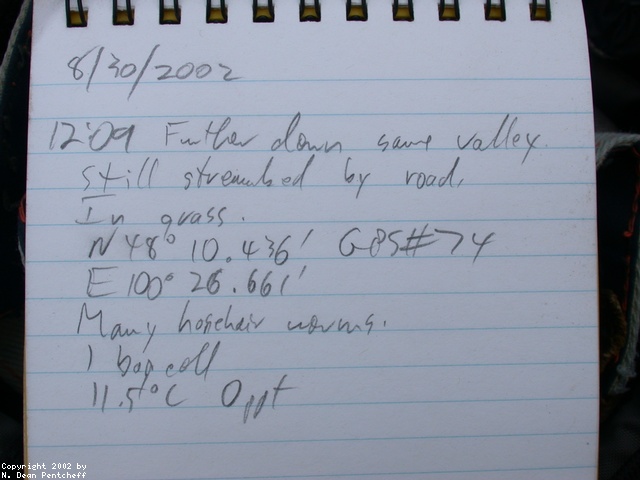 8/30/2002
12:09 Further down same valley.
Still streambed by road,
In grass.
N 48° 10.436' GPS#74
E 100° 26.661'
Many horsehair worms.
1 bag coll
11.5°C 0ppt
Copyright 2002 by
N. Dean Pentcheff